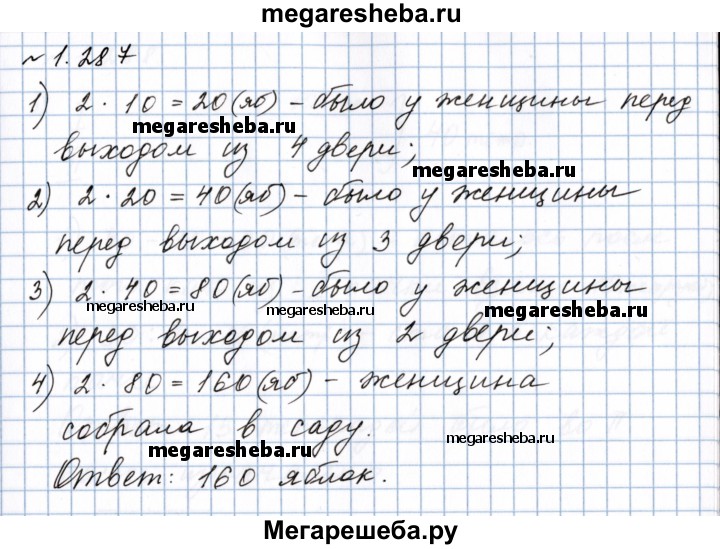 megaresheba.ru
№ 1.287
1) 2 · 10 = 20 (яб) - было у женщины перед
megaresheba.ru
выходом из 4 двери;
2) 2 · 20 = 40 (яб) - было у женщины
перед выходом из 3 двери;
3) 2 · 40 = 80 (яб) - было у женщины
megaresheba.ru megaresheba.ru megaresheba.ru
перед выходом из 2 двери;
4) 2 · 80 = 160 (яб) - женщина
собрала в саду.
megaresheba.ru megaresheba.ru
Ответ: 160 яблок.
megaresheba.ru
Мегарешеба.ру